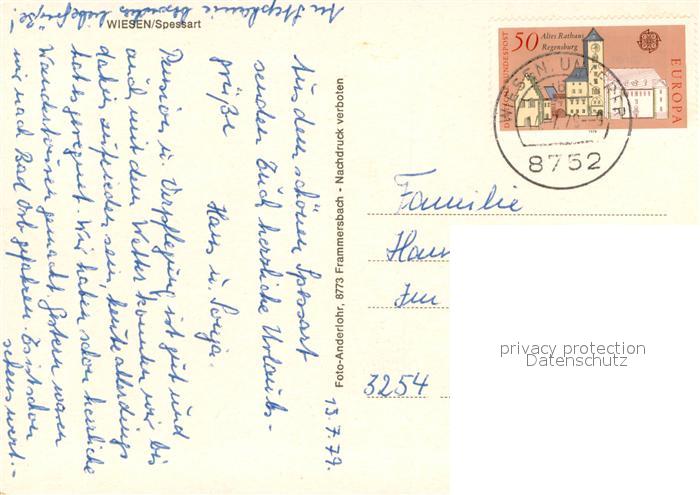 WIESEN/Spessart
13.7.79.
Aus dem schönen Spessart
senden Euch herzliche Urlaubs-
grüße
Hans u. Sonja.
Pension u. Verpflegung ist gut und
auch mit dem Wetter konnten wir bis
dahin zufrieden sein, heut allerdings
hat's geregnet. Wir haben schon herrliche
Wandertouren gemacht. Gestern waren
wir nach Bad Orb gefahren. Es ist schon
sehenswert.-
An Stephanie besonders liebe Grüße!
Foto-Anderlohr, 8773 Frammersbach - Nachdruck verboten
DEUTSCHE BUNDESPOST
50
Altes Rathaus
Regensburg
EUROPA
1978
WIESEN UNTERFR
8752
Familie
Han
Im
3254
privacy protection
Datenschutz